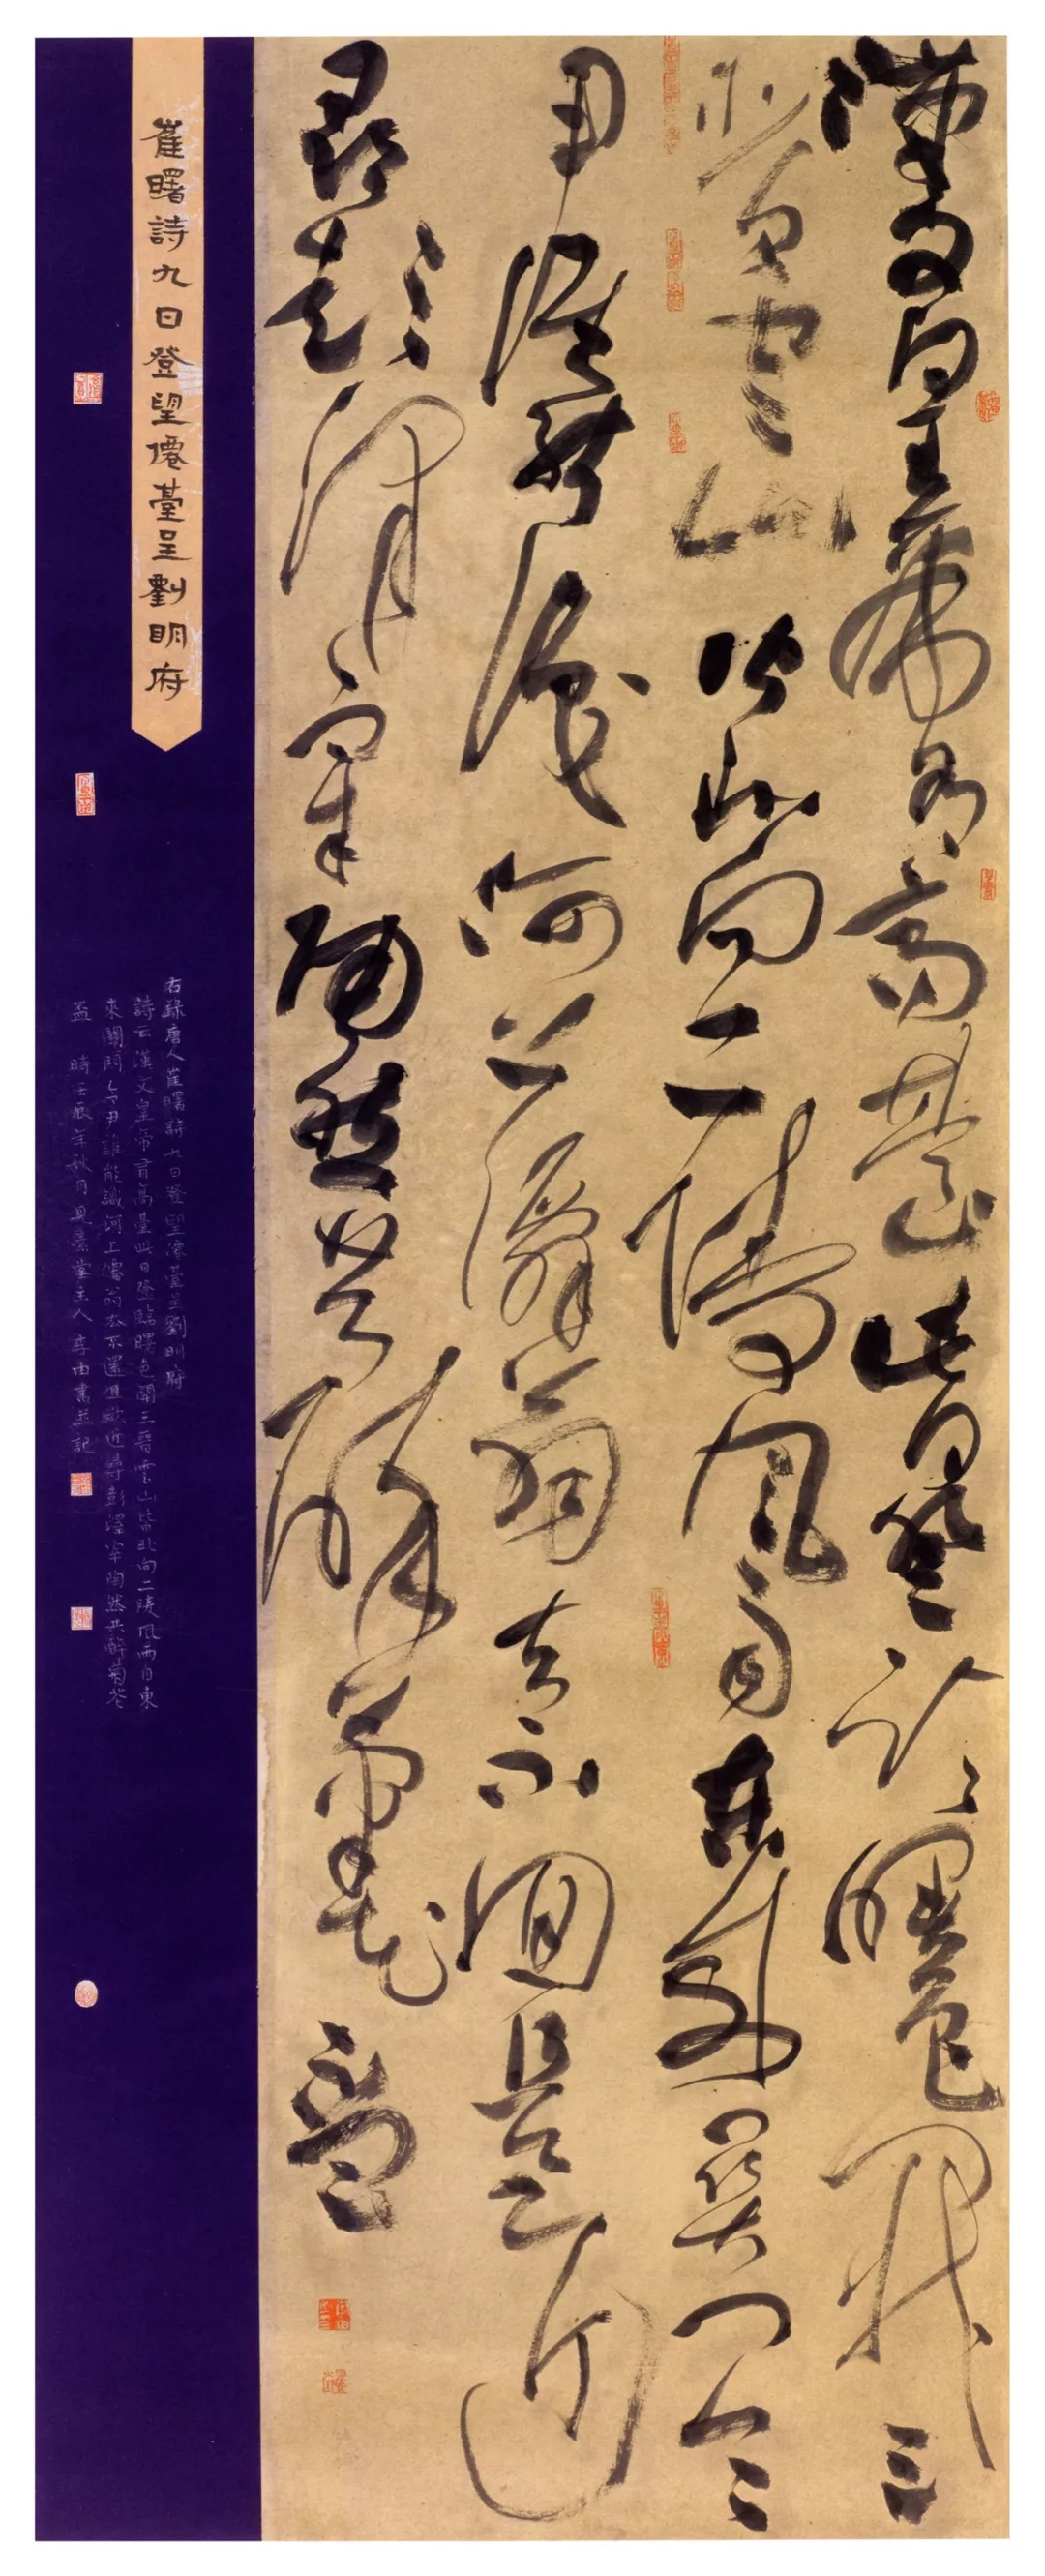 漢文皇帝有高臺此日登臨曙色開三
晉雲山皆北向二陵風雨自東來關門令
尹誰能識河上僊翁去不迴且欲近
尋彭澤宰陶然共醉菊花盃
崔曙詩九日登望僊臺呈劉明府
右錄唐人崔曙詩九日登望僊臺呈劉明府
詩云漢文皇帝有高臺此日登臨曙色開三晉雲山皆北向二陵風雨自東
來關門令尹誰能識河上僊翁去不還且欲近尋彭澤宰陶然共醉菊花
盃 時壬辰年秋月堂主人李由書並記